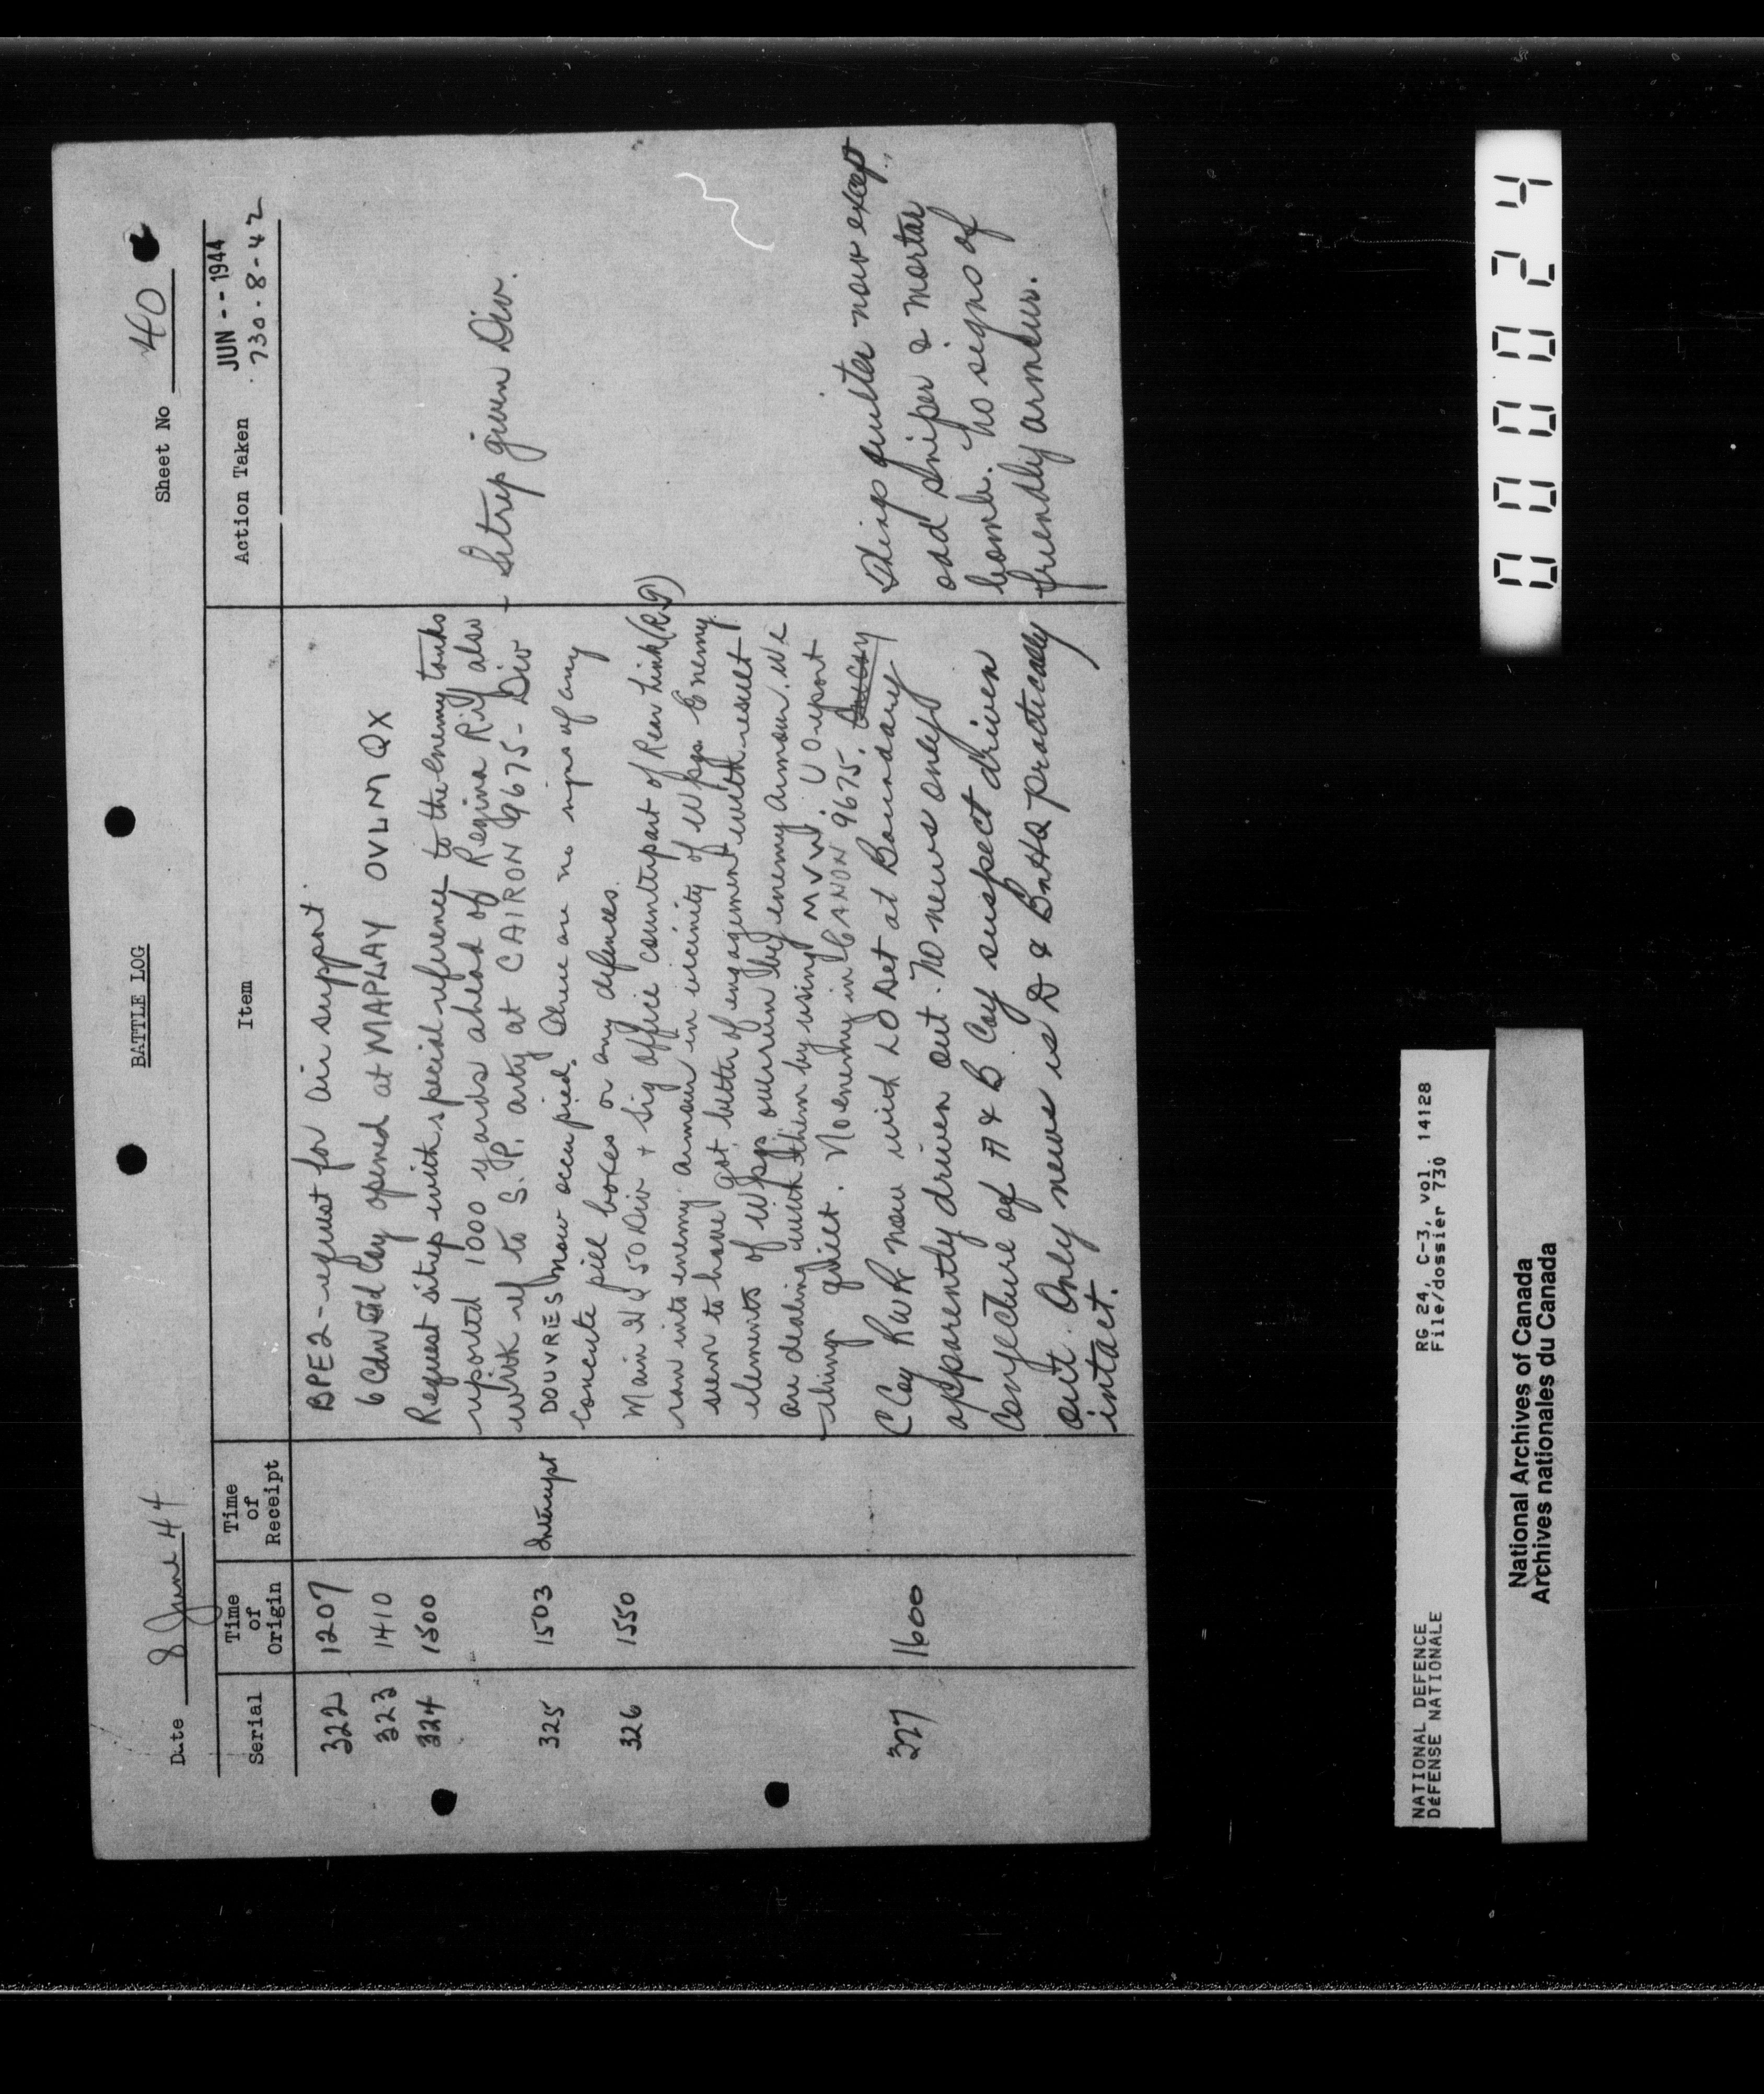 BATTLE LOG
Date 8 June 44
Sheet No 40
Serial
Time of Origin
Time of Receipt
Item
Action Taken
JUN - - 1944
730.8-42
322 1207 BPE2 - request for air support.
323 1410 6 Cdn Fd Coy opened at MAPLAY OVLM QX
324 1500 Request sitrep with special reference to the enemy tanks
reported 1000 yards ahead of Regina Rif also
with ref to S.P. arty at CAIRON 9675 - Div - Sitrep given Div.
325 1503 Intercept DOUVRES now occupied. There are no signs of any
concrete pill boxes or any defences.
326 1550 Main HQ 50 Div + Sig office counterpart of Rear Link
ran into enemy armour in vicinity of W pgs Enemy
seem to have got better of engagement with result
elements of W pgs overrun by enemy armour. We
are dealing with them by using MVW. UO report
things quiet. No enemy in CANON 9675.
327 1600 C Coy RWR now with LO Det at Boundary
apparently driven out. No news only
conjecture of A & B Coy suspect driven
out. Only news is D & BnHQ practically
intact.
Things quiter now except
odd sniper & mortar
bomb. No signs of
friendly armour.
000024
NATIONAL DEFENCE
DÉFENSE NATIONALE
RG 24, C-3, vol. 14128
File/dossier 730
National Archives of Canada
Archives nationales du Canada